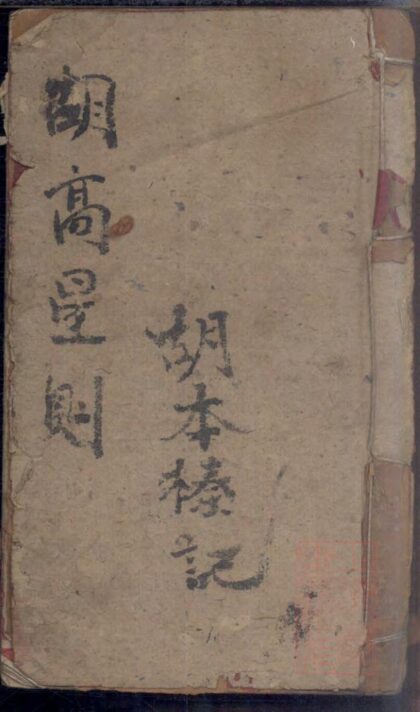 胡本記
胡高星則